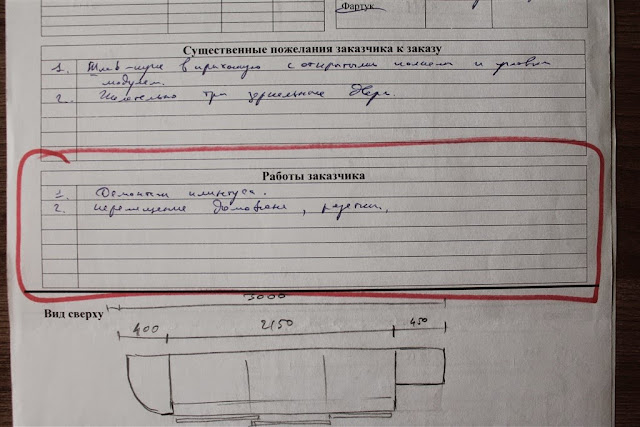 Фартук
Существенные пожелания заказчика к заказу
1. Шкаф-купе в прихожую с открытыми полками и угловым
модулем.
2. Желательно три зеркальные двери.
Работы заказчика
1. Демонтаж плинтуса.
2. перемещение домофона, розетки.
3000
Вид сверху
400 2150 450